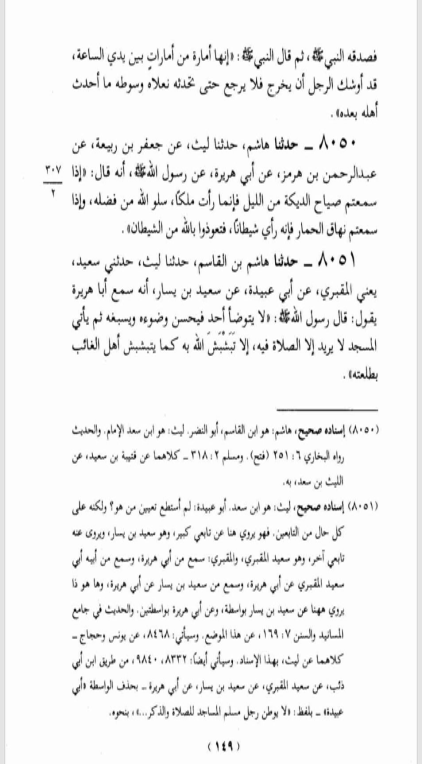 فصدقه النبي ﷺ، ثم قال النبي ﷺ: «إنها أمارة من أمارات بين يدي الساعة،
قد أوشك الرجل أن يخرج فلا يرجع حتى تحدثه نعلاه وسوطه ما أحدث
أهله بعده».
٨٠٥٠ ــ حدثنا هاشم، حدثنا ليث، عن جعفر بن ربيعة، عن
عبدالرحمن بن هرمز، عن أبي هريرة، عن رسول الله ﷺ، أنه قال: «إذا
٣٠٧
٢
سمعتم صياح الديكة من الليل فإنما رأت ملكًا، سلو الله من فضله، وإذا
سمعتم نهاق الحمار فإنه رأي شيطانًا، فتعوذوا بالله من الشيطان».
٨٠٥١ ــ حدثنا هاشم بن القاسم، حدثنا ليث، حدثني سعيد،
يعني المقبري، عن أبي عبيدة، عن سعيد بن يسار، أنه سمع أبا هريرة
يقول: قال رسول الله ﷺ: «لا يتوضأ أحد فيحسن وضوءه ويسبغه ثم يأتي
المسجد لا يريد إلا الصلاة فيه، إلا تَبَشْبَشَ الله به كما يتبشبش أهل الغائب
بطلعته».
(٨٠٥٠) إسناده صحيح، هاشم: هو ابن القاسم، أبو النضر. ليث: هو ابن سعد الإمام. والحديث
رواه البخاري ٦: ٢٥١ (فتح). ومسلم ٢: ٣١٨ ــ كلاهما عن قتيبة بن سعيد، عن
الليث بن سعد، به.
(٨٠٥١) إسناده صحيح، ليث: هو ابن سعد. أبو عبيدة: لم أستطع تعيين من هو؟ ولكنه على
كل حال من التابعين. فهو يروي هنا عن تابعي كبير، وهو سعيد بن يسار، ويروى عنه
تابعي آخر، وهو سعيد المقبري، والمقبري: سمع من أبي هريرة، وسمع من أبيه أبي
سعيد المقبري عن أبي هريرة، وسمع من سعيد بن يسار عن أبي هريرة، وها هو ذا
يروي ههنا عن سعيد بن يسار بواسطة، وعن أبي هريرة بواسطتين. والحديث في جامع
المسانيد والسنن ٧: ١٦٩، عن هذا الموضع. وسيأتي: ٨٤٦٨، عن يونس وحجاج ــ
كلاهما عن ليث، بهذا الإسناد. وسيأتي أيضًا: ٨٣٣٢، ٩٨٤٠، من طريق ابن أبي
ذئب، عن سعيد المقبري، عن سعيد بن يسار، عن أبي هريرة ــ بحذف الواسطة «أبي
عبيدة» ــ بلفظ: «لا يوطن رجل مسلم المساجد للصلاة والذكر...»، بنحوه.
(١٤٩)